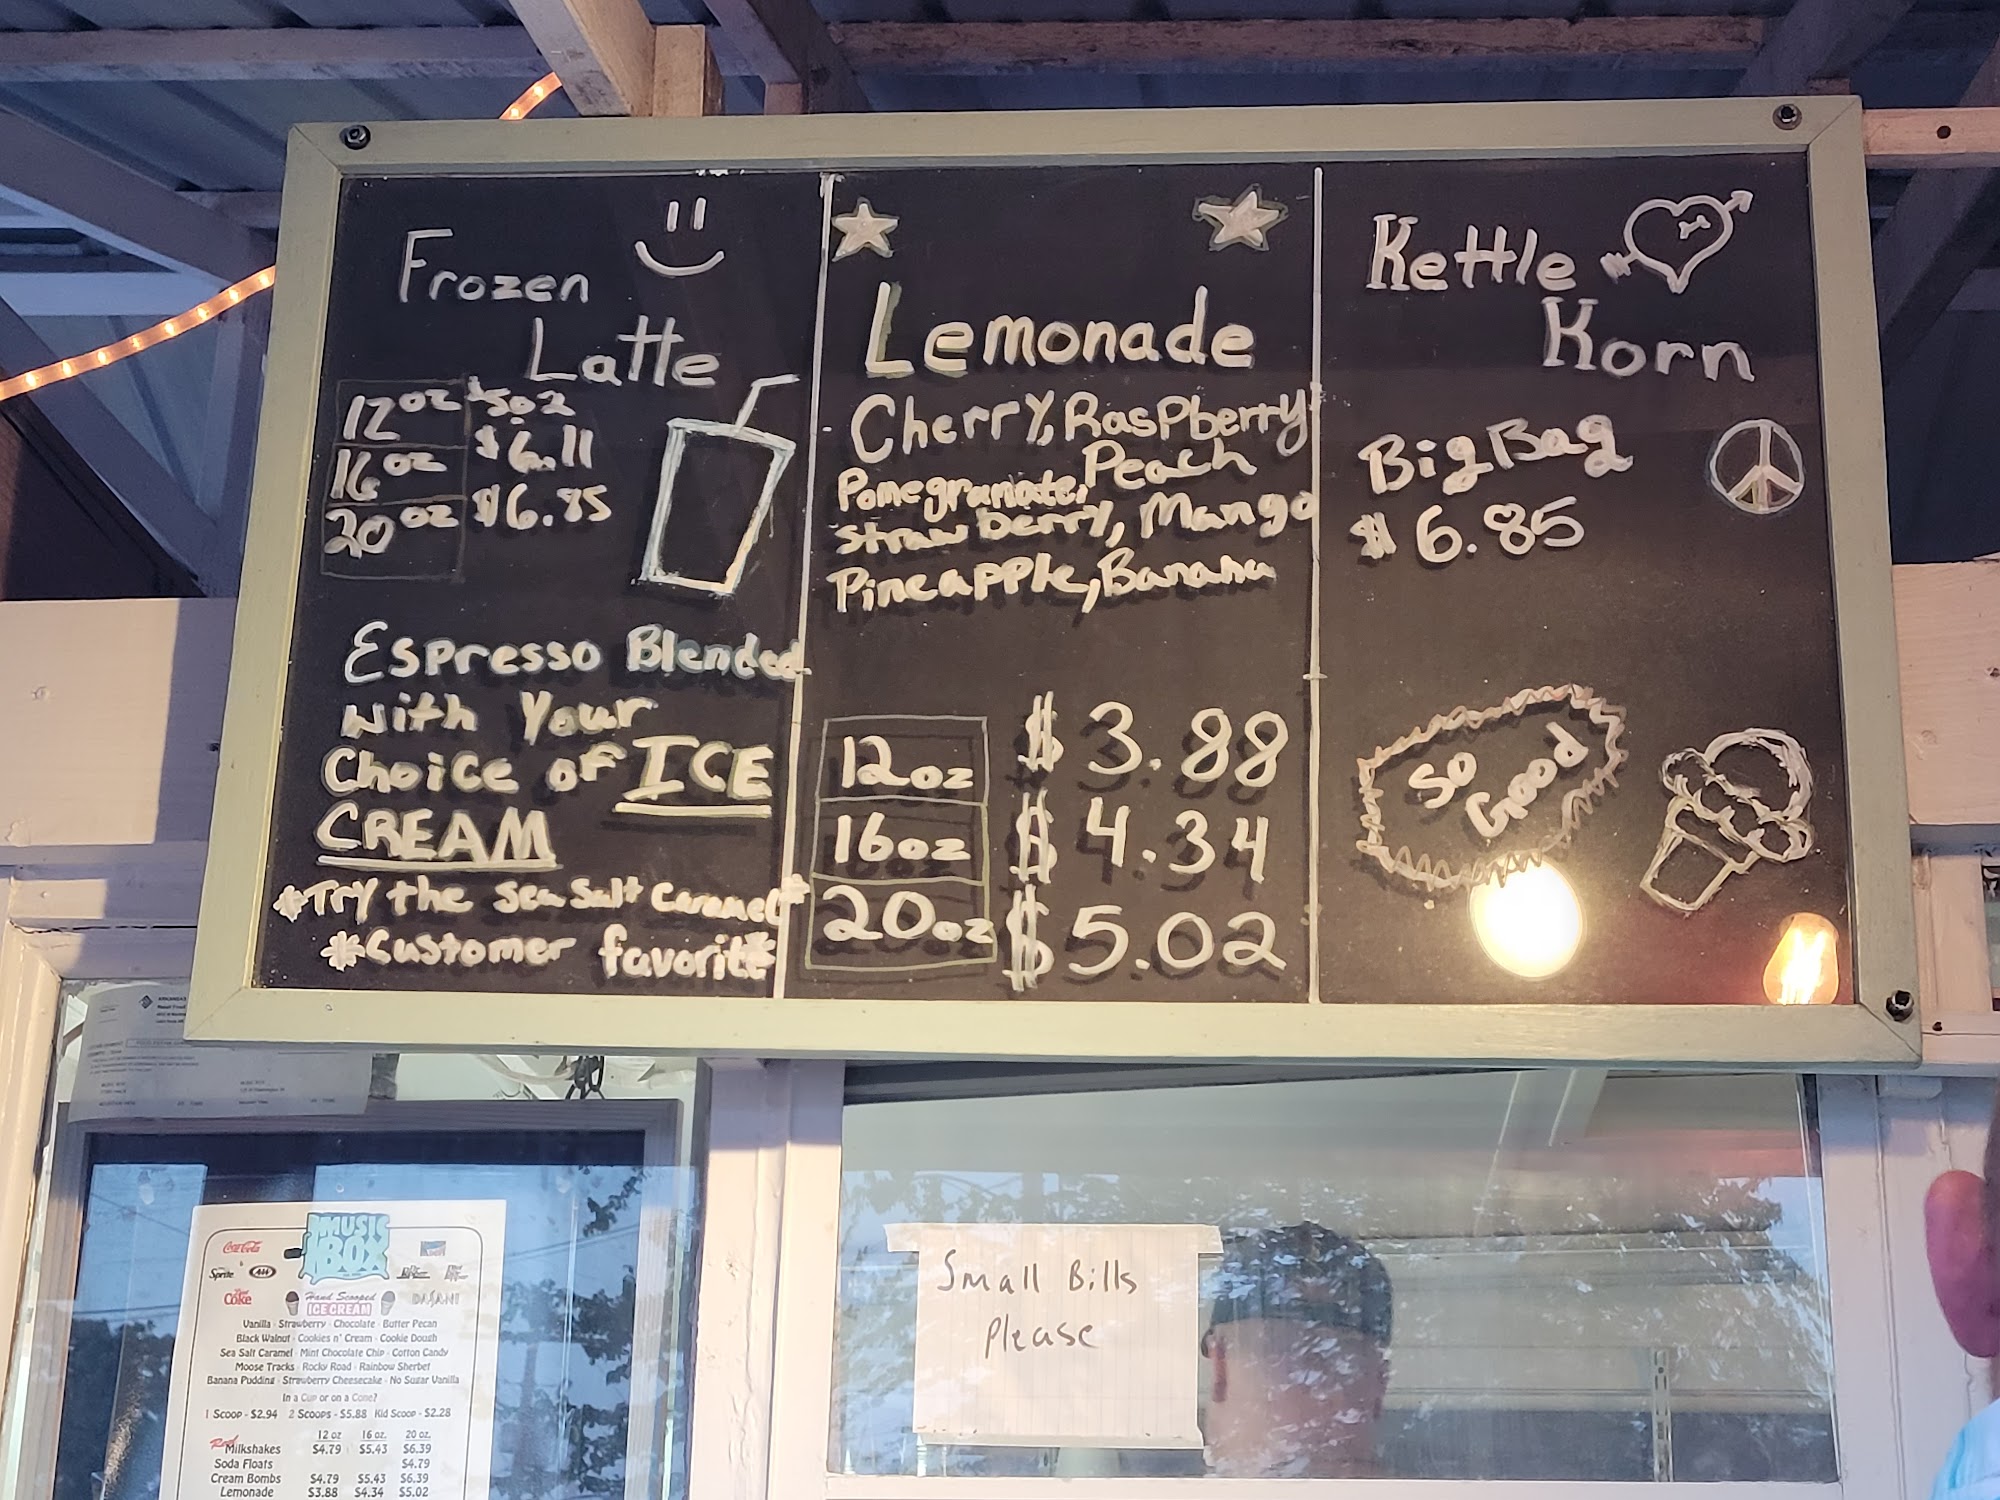 Frozen
Latte
12 oz $5.02
16 oz $6.11
20 oz $6.85
Espresso Blended
with Your
Choice of ICE
CREAM
*Try the sea salt caramel*
*Customer favorite*
Lemonade
Cherry, Raspberry
Pomegranate, Peach
strawberry, Mango
Pineapple, Banana
12oz $3.88
16oz $4.34
20oz $5.02
Kettle
Korn
Big Bag
$6.85
So
Good
MUSIC
BOX
Coca-Cola
Sprite A&W
Diet Coke
DASANI
Hand Scooped
ICE CREAM
Vanilla · Strawberry · Chocolate · Butter Pecan
Black Walnut · Cookies n' Cream · Cookie Dough
Sea Salt Caramel · Mint Chocolate Chip · Cotton Candy
Moose Tracks · Rocky Road · Rainbow Sherbet
Banana Pudding · Strawberry Cheesecake · No Sugar Vanilla
In a Cup or on a Cone?
1 Scoop - $2.94 2 Scoops - $5.88 Kid Scoop - $2.28
12 oz 16 oz. 20 oz.
Real Milkshakes $4.79 $5.43 $6.39
Soda Floats $4.79
Cream Bombs $4.79 $5.43 $6.39
Lemonade $3.88 $4.34 $5.02
Small Bills
Please